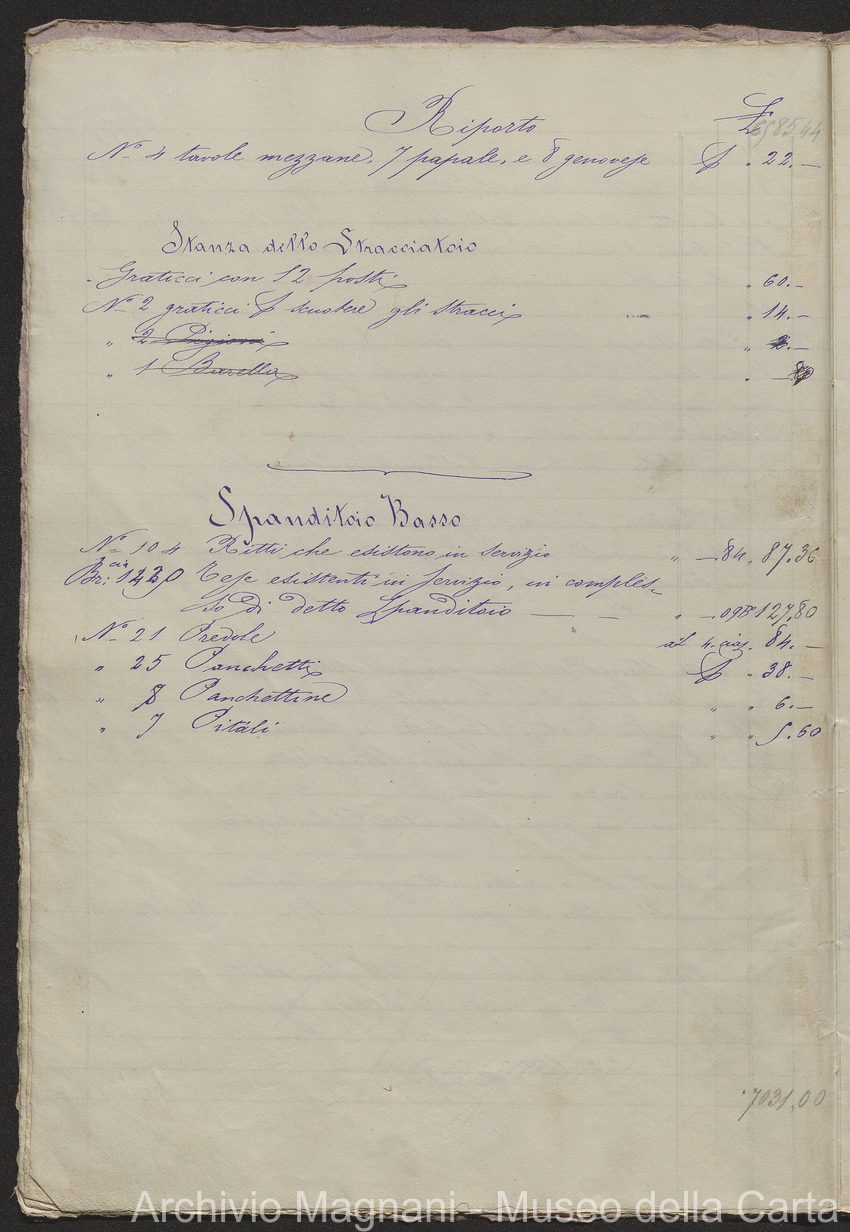 Riporto £ 6585,44
N.° 4 tavole mezzane, 7 papale, e 8 genovese £ „ 22.—
Stanza dello Stracciatoio
Graticci con 12 posti „ 60.—
N.° 2 graticci p scuotere gli stracci „ 14.—
„ 2 Pigioni „ 2.—
„ 1 Barella „ —
Spanditoio Basso
N.° 104 Ritti che esistono in servizio „ —84 „ 87.36
Br:cia 1420 Tese esistenti in servizio, in comples-
so di detto Spanditoio — — „ —.09 127,80
N.° 21 Predole al 4. cias. 84.—
„ 25 Panchetti £ „ 38.—
„ 8 Panchettine „ „ 6.—
„ 7 Pitali „ „ 5.60
7031,00
Archivio Magnani - Museo della Carta